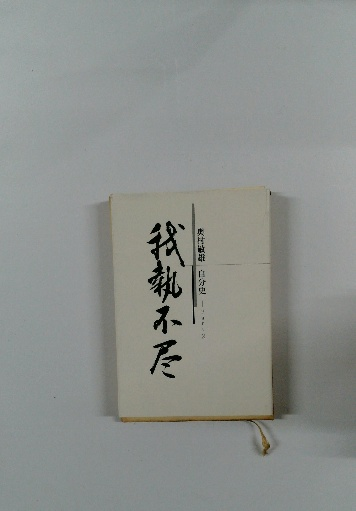 奥村敏雄 自分史
我執不尽